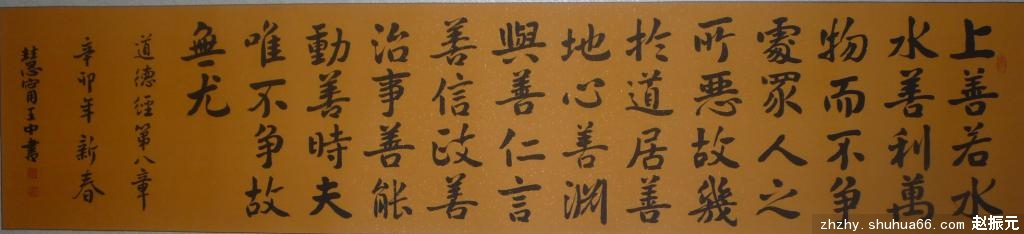 上善若水
水善利萬
物而不争
處眾人之
所惡故幾
於道居善
地心善淵
與善仁言
善信政善
治事善能
動善時夫
唯不争故
無尤
道德經第八章
辛卯年新春
zhzhy.shuhua66.com 赵振元